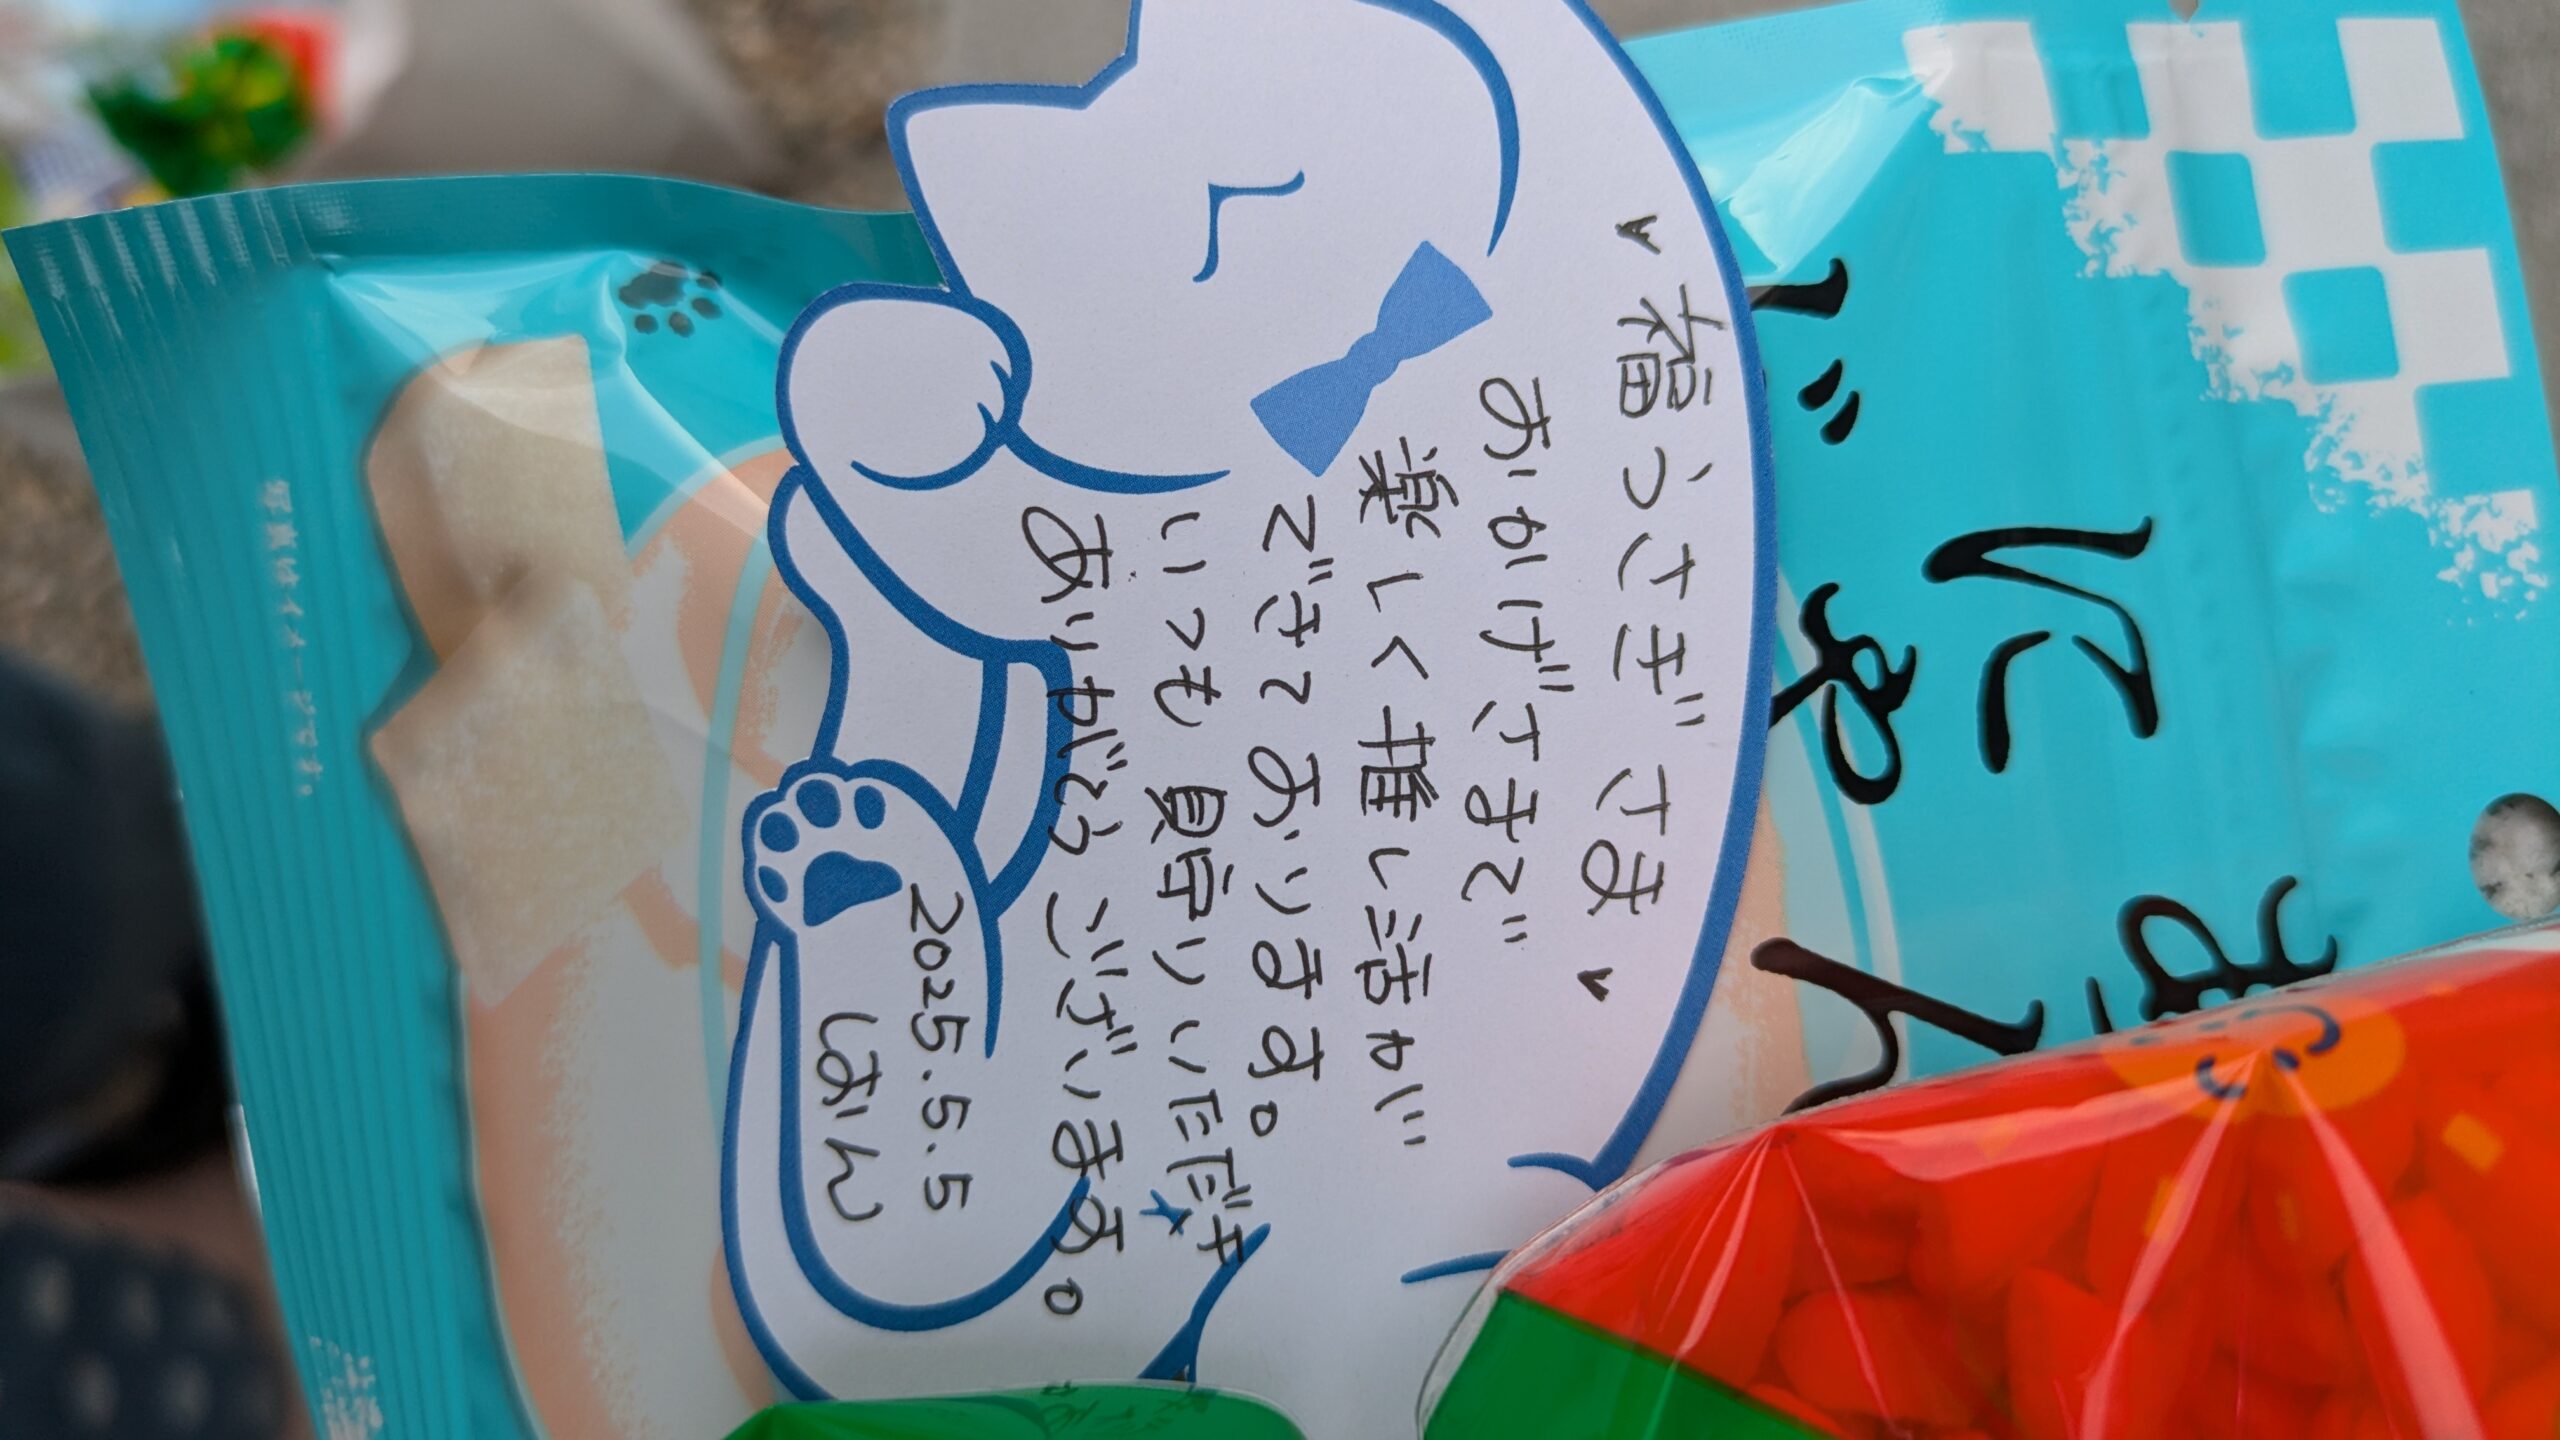 福うさぎさま
おかげさまで
楽しく推し活が
できております。
いつも見守りいただき
ありがとうございます。
2025.5.5
はおん
写真はイメージです。